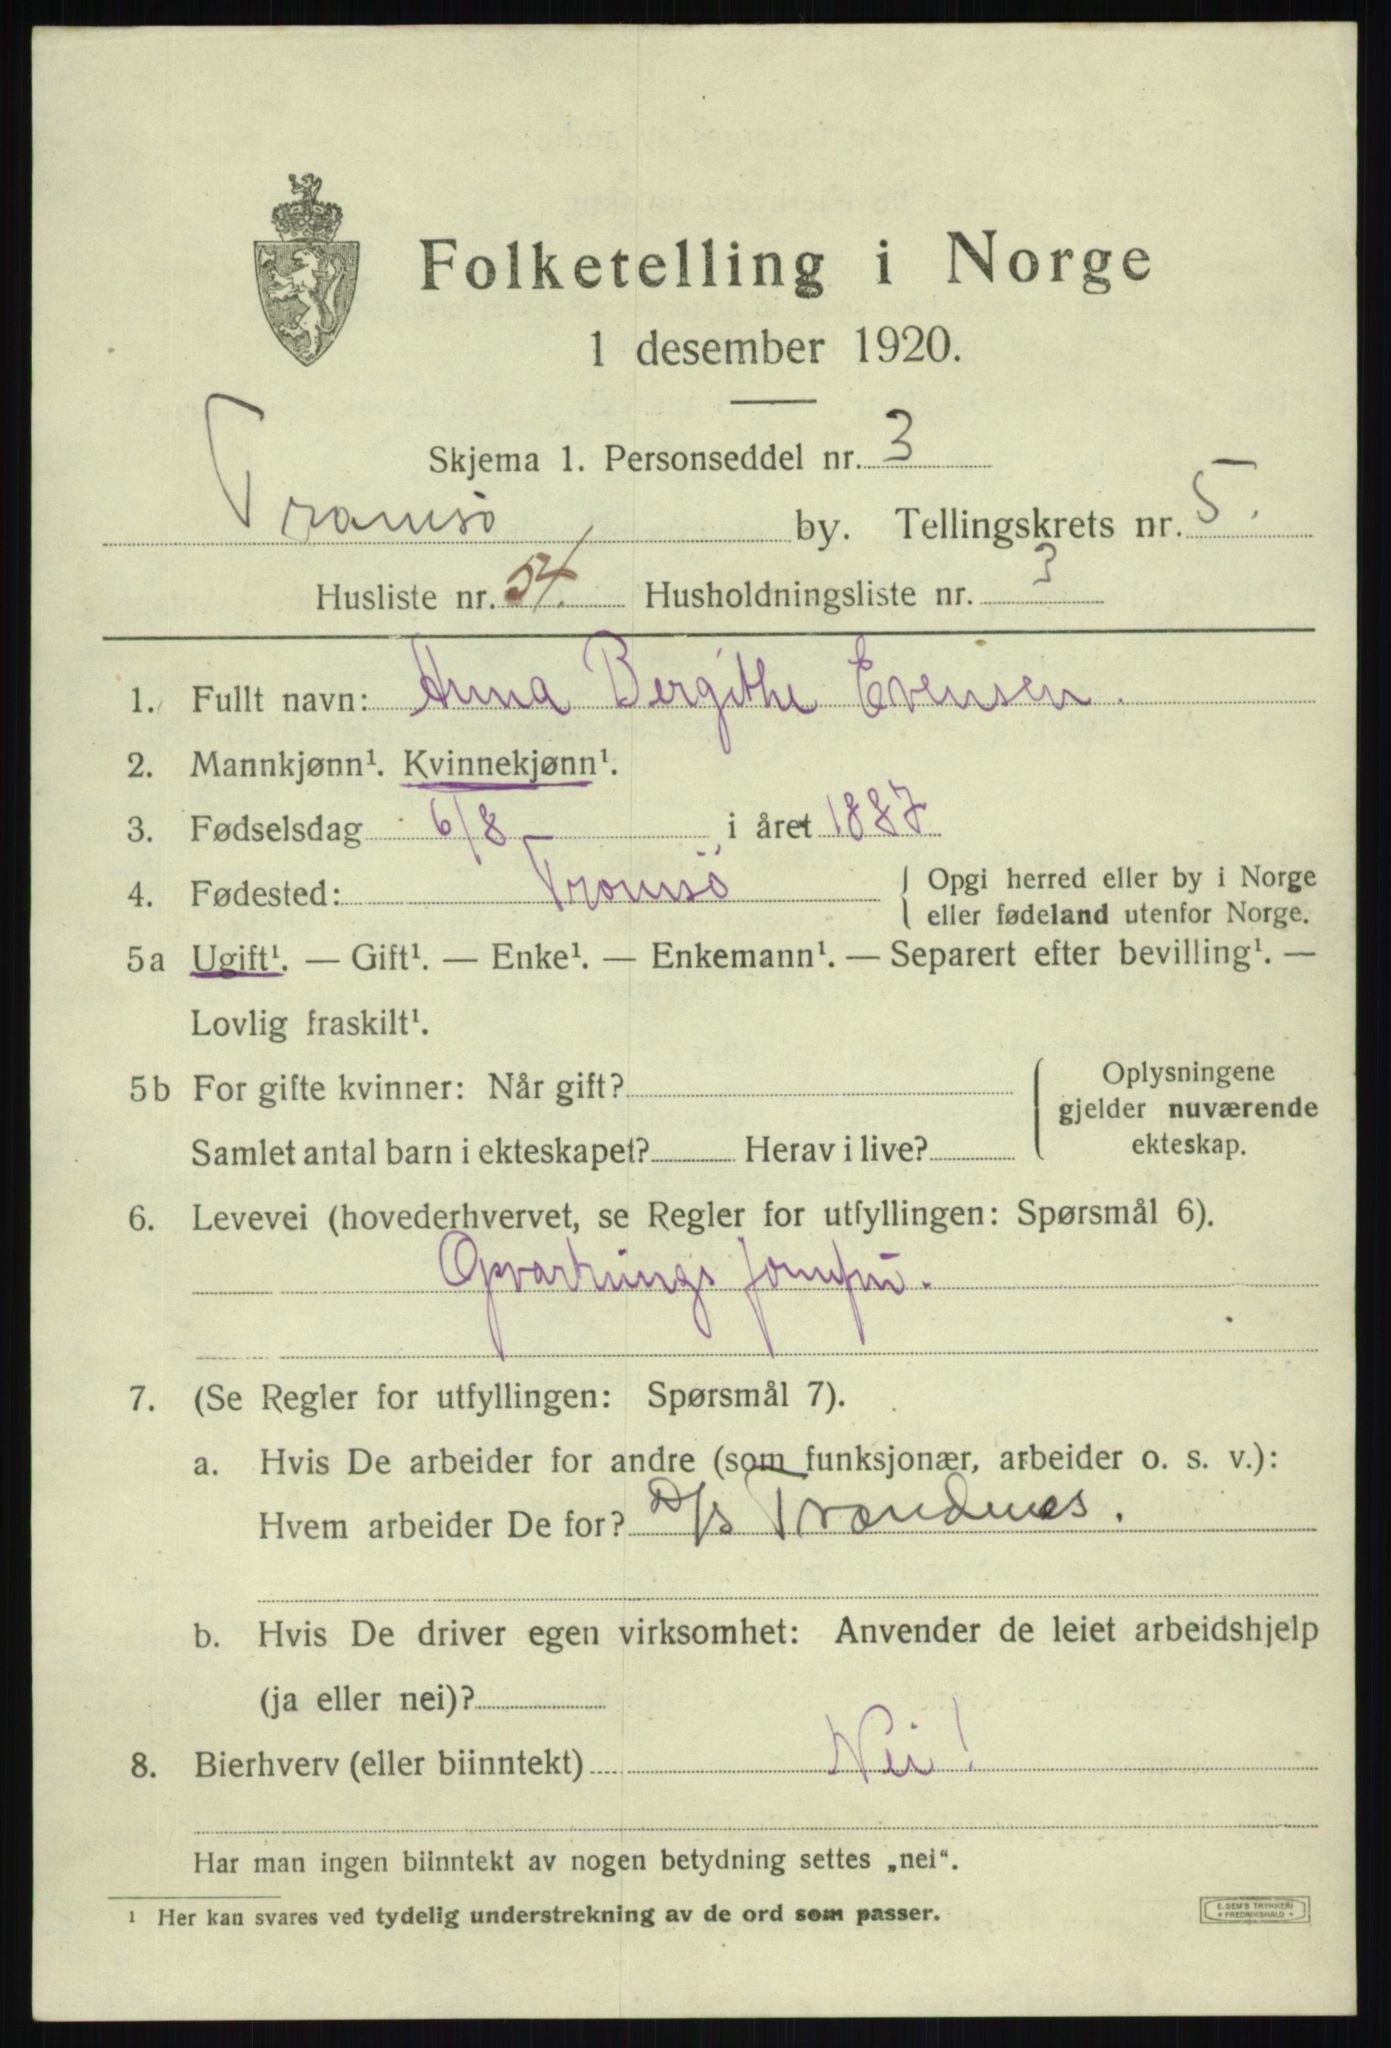 Folketelling i Norge
1 desember 1920.
Skjema 1. Personseddel nr. 3
Tromsö by. Tellingskrets nr. 5.
Husliste nr. 54. Husholdningsliste nr. 3
1. Fullt navn: Anna Bergithe Evensen.
2. Mannkjønn¹. Kvinnekjønn¹.
3. Fødselsdag 6/8 – i året 1887
4. Fødested: Tromsö { Opgi herred eller by i Norge
eller fødeland utenfor Norge.
5a Ugift¹. — Gift¹. — Enke¹. — Enkemann¹. — Separert efter bevilling¹. —
Lovlig fraskilt¹.
5b For gifte kvinner: Når gift? { Oplysningene
gjelder nuværende
Samlet antal barn i ekteskapet? Herav i live? ekteskap.
6. Levevei (hovederhvervet, se Regler for utfyllingen: Spørsmål 6).
Opvartnings jomfru.
7. (Se Regler for utfyllingen: Spørsmål 7).
a. Hvis De arbeider for andre (som funksjonær, arbeider o. s. v.):
Hvem arbeider De for? D/s Trondenes.
b. Hvis De driver egen virksomhet: Anvender de leiet arbeidshjelp
(ja eller nei)?
8. Bierhverv (eller biinntekt) Nei!
Har man ingen biinntekt av nogen betydning settes „nei“.
¹ Her kan svares ved tydelig understrekning av de ord som passer.
E. SEM'S TRYKKERI
* FREDRIKSHALD *